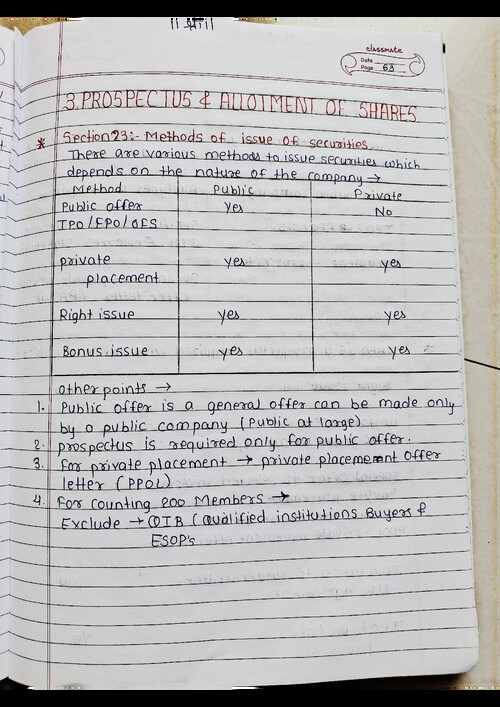 || श्री ||
classmate
Date
Page 63
3. PROSPECTUS & ALLOTMENT OF SHARES
* Section 23:- Methods of issue of securities
There are various methods to issue securities which
depends on the nature of the company →
Method Public Private
Public offer Yes No
IPO/FPO/OFS
private yes yes
placement
Right issue yes yes
Bonus issue yes yes
other points →
1. Public offer is a general offer can be made only
by a public company (Public at large)
2. prospectus is required only for public offer.
3. For private placement → private placement offer
letter (PPOL)
4. For counting 200 Members →
Exclude → QIB (Qualified institutions Buyers &
ESOP's